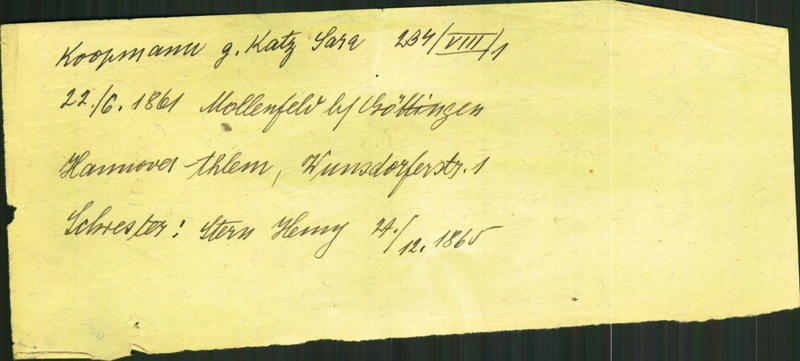 Koopmann g. Katz Sara 234/VIII/1
22./6. 1861 Mollenfeld b/ Göttingen
Hannover Ahlem, Wunsdorferstr. 1
Schwester: Stern Henny 24./12. 1865